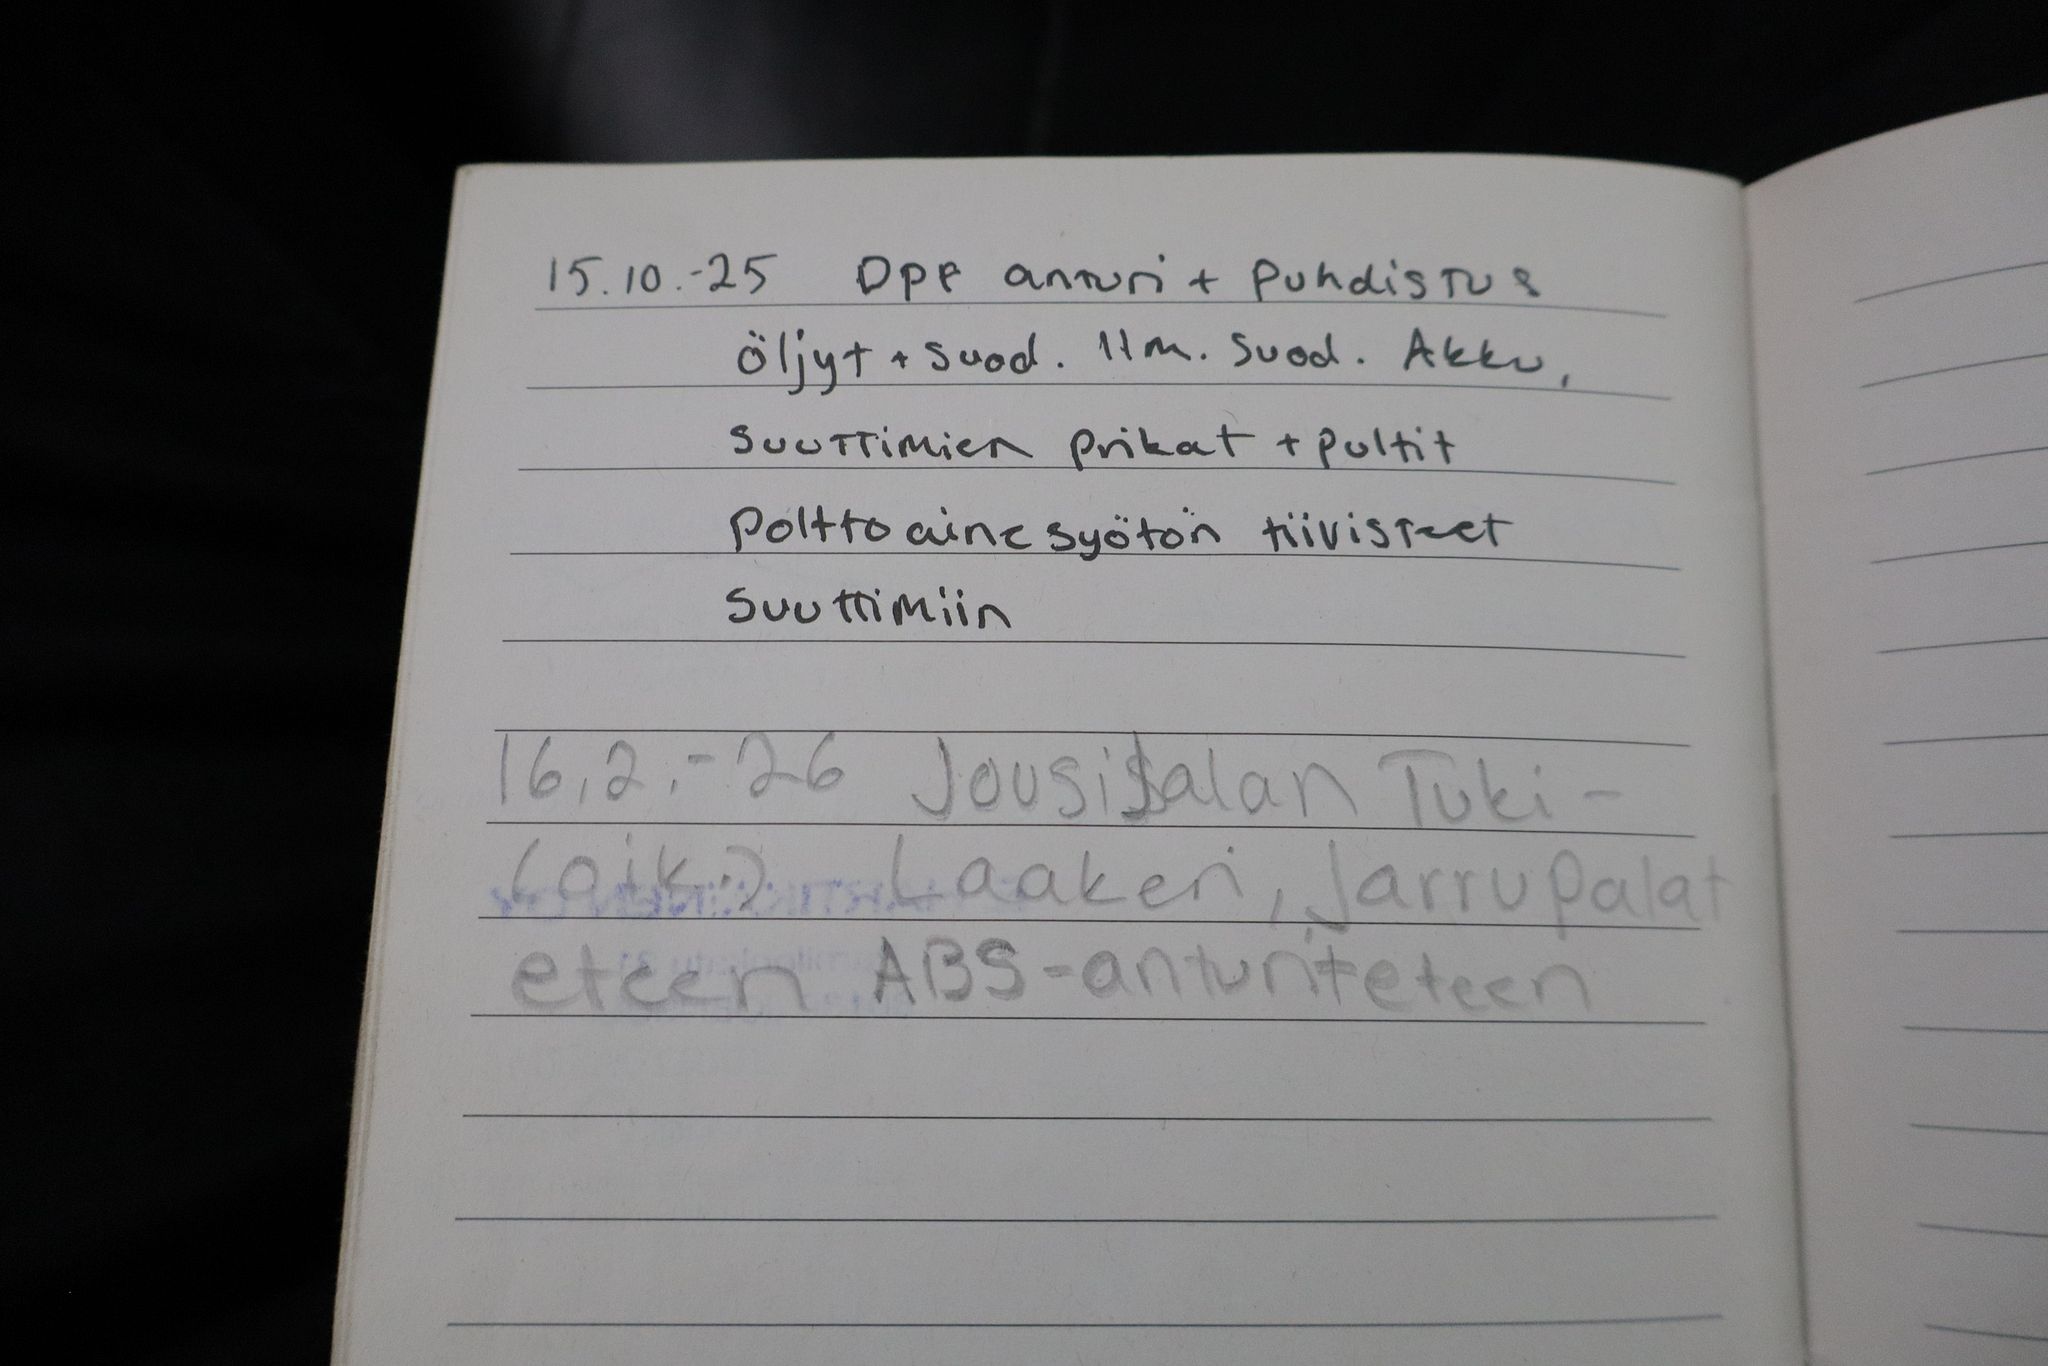 15.10.-25 DPF anturi + puhdistus
öljyt + suod. Ilm. suod. Akku,
suuttimien prikat + pultit
polttoainesyötön tiivisteet
suuttimiin
16.2.-26 Jousijalan Tuki-
(oik.) Laakeri, Jarrupalat
eteen ABS-anturit eteen